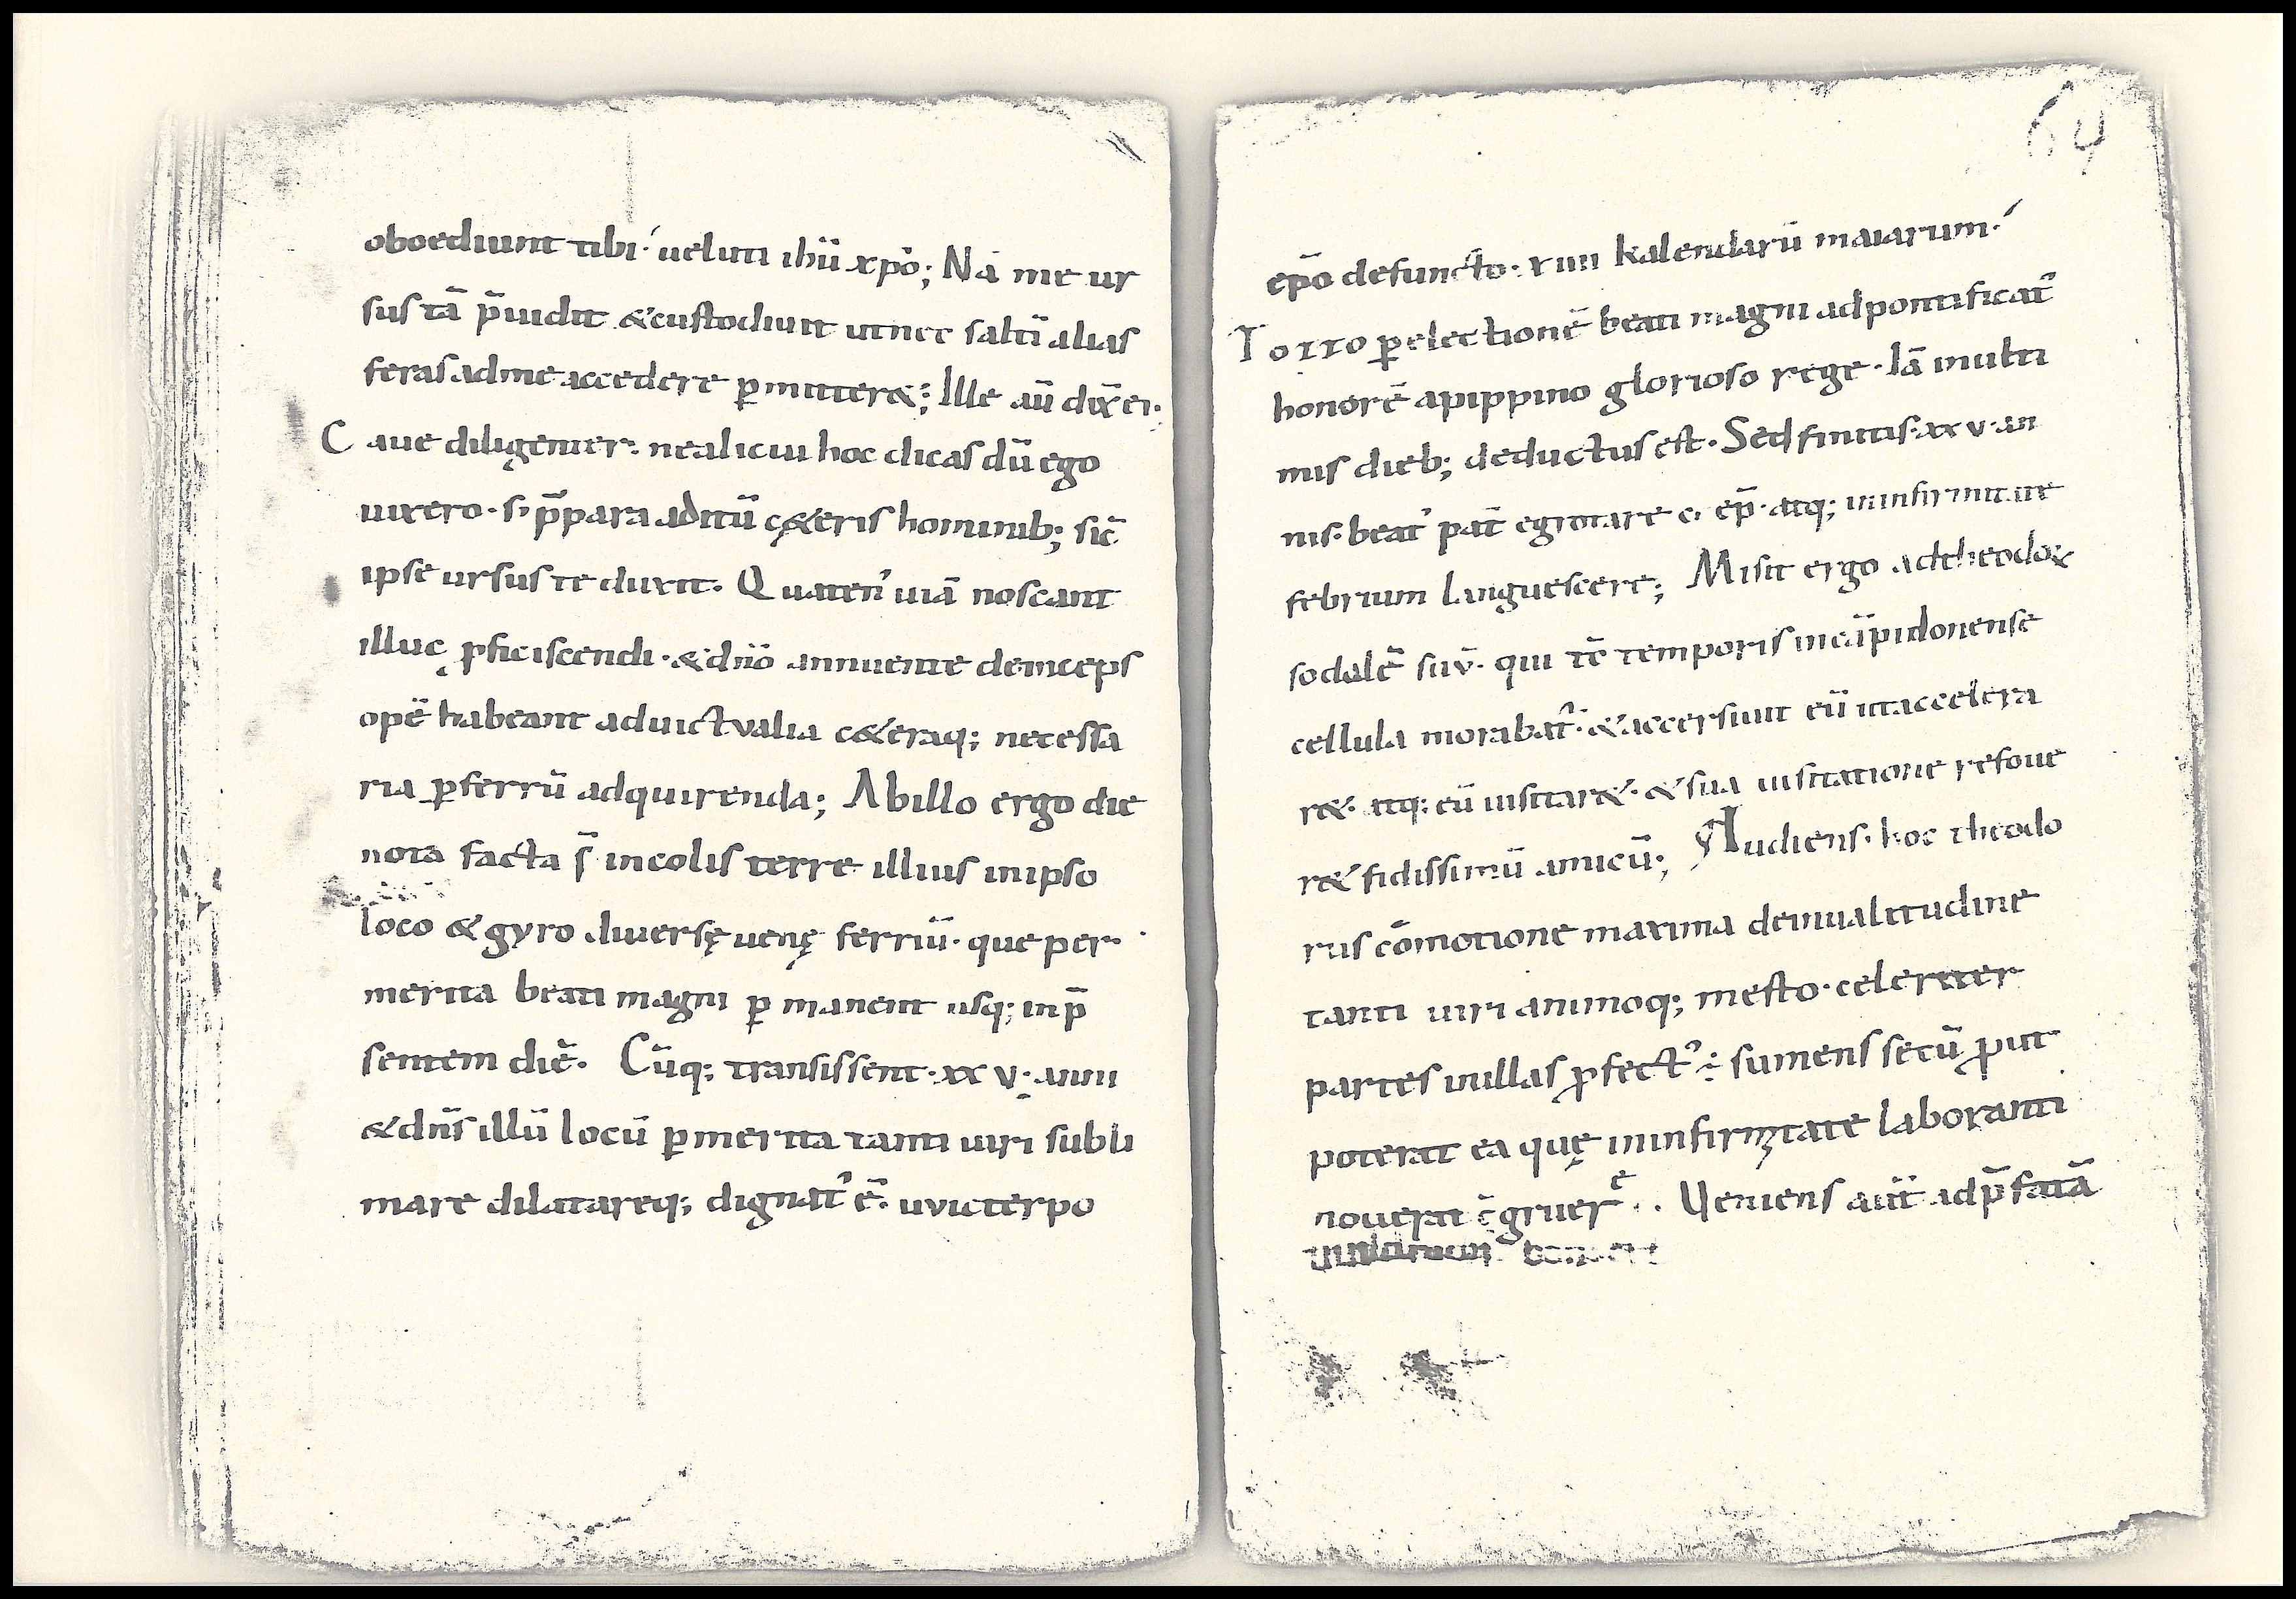 oboediunt tibi. ueluti ihū xpō; Nā me ur
sus tā p̄uidit &custodiuit utnec saltī alias
feras adme accedere p̱mitter&; Ille aū dix̄ ei.
Caue diligenter. nealicui hoc dicas dū ego
uixero. s; p̄para aditū c&eris hominib; sic̄
ipse ursus te duxit. Quaten' uiā noscant
illuc ꝓficiscendi. &dn̄o annuente deinceps
opē habeant aduictualia c&eraq; necessa
ria ꝑferrū adquirenda; Abillo ergo die
nota facta s̄ incolis terre illius inipso
loco &gyro diuersę uenę ferrū. que per
merita beati magni ꝑmanent usq; inp̄
sentem diē. Cūq; transissent .xx v. anni
&dn̄s illū locū ꝑmerita tanti uiri subli
mare dilatareq; dignat' ē. uvicterpo
64
ep̄o defuncto. xiiii kalendarū maiarum.
Torro ꝑelectionē beati magni adpontificat'
honorē apippino glorioso rege. Iā multi
mis dieb; deductus est. Sed finitis .xx v. an
nis. beat' pat̄ egrotare c ep̄. atq; ininfirmitate
febrium languescere; Misit ergo adtheodor
sodalē suū. qui tē temporis incāpidonense
cellula morabat'. &accersiuit eū utaccelera
r&. atq; eū uisitar&. &sua uisitatione refoue
r& fidissimū amicū; Audiens hoc theodo
rus cōmotione maxima deinualitudine
tanti uiri animoq; mesto. celeriter
partes inillas ꝓfect' ē sumens secū ꝓut
poterat ea quę ininfirmitate laboranti
nouerat c̄gruere. Ueniens aūt adp̄fatā